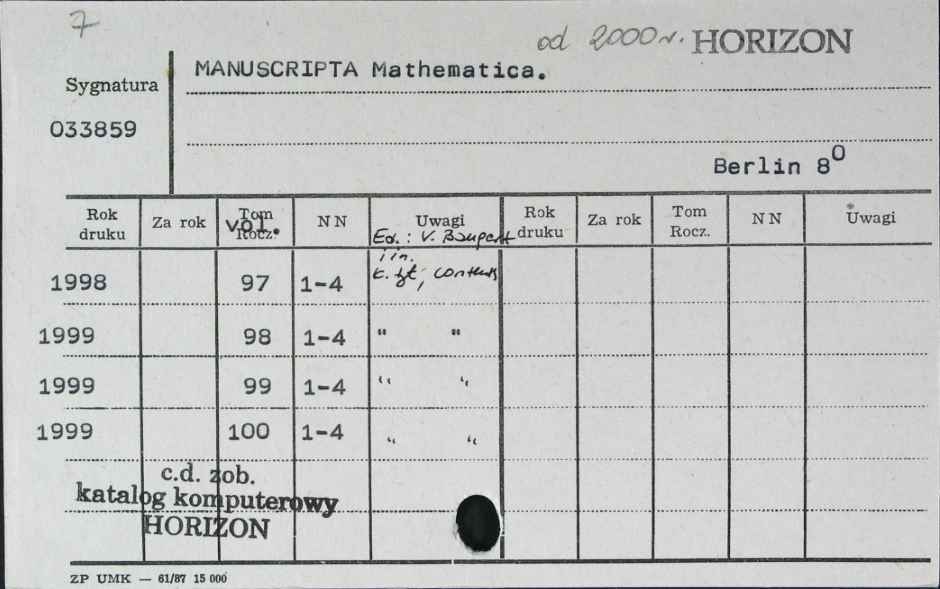 7
od 2000 r. HORIZON
MANUSCRIPTA Mathematica.
Sygnatura
033859
Berlin 8⁰
Rok druku Za rok Tom Rocz. vol. N N Uwagi Rok druku Za rok Tom Rocz. N N Uwagi
Ed.: V. 
i in.
1998 97 1-4 k. tyt., contents
1999 98 1-4 " "
1999 99 1-4 " "
1999 100 1-4 " "
c.d. zob.
katalog komputerowy
HORIZON
ZP UMK — 61/87 15 000